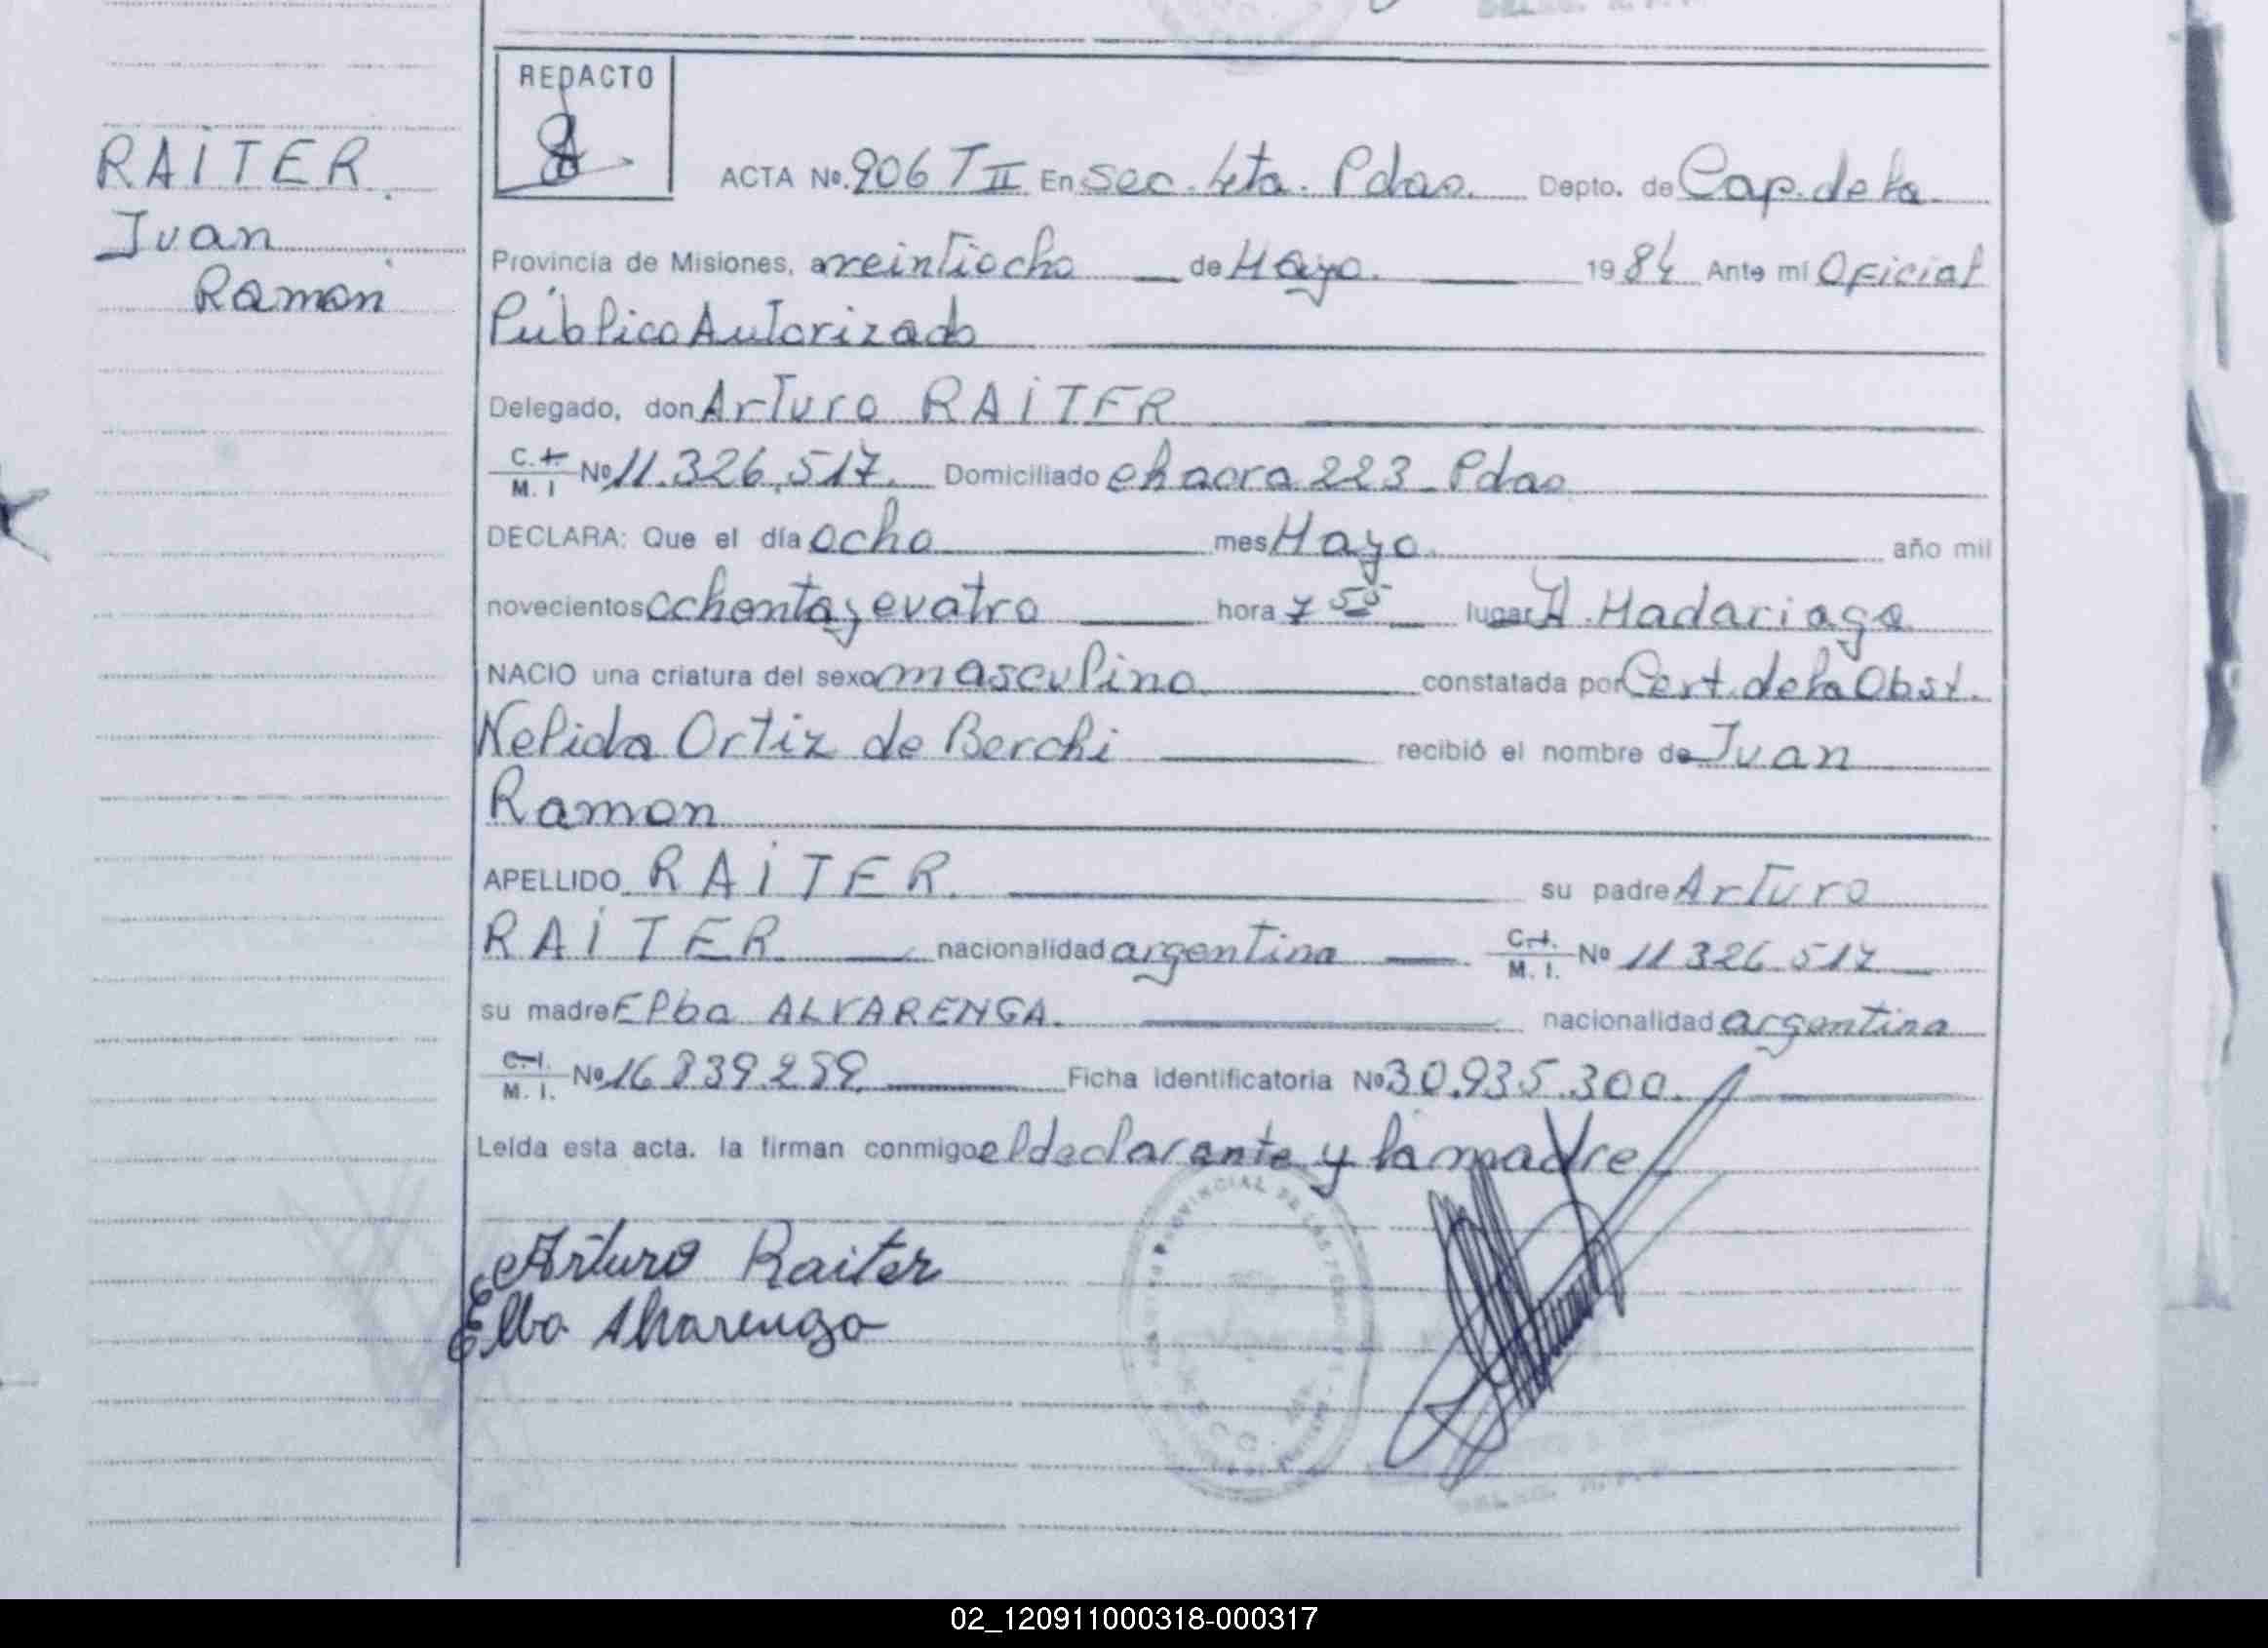 REDACTO
RAITER.
Juan
Ramon
ACTA Nº. 906 T II En Sec. 4ta. Pdas. Depto. de Cap. de la
Provincia de Misiones, a veintiocho de Mayo. 1984 Ante mí Oficial
Público Autorizado
Delegado, don Arturo RAITER
C. I. M. I Nº 11.326.517. Domiciliado chacra 223 Pdas
DECLARA: Que el día ocho mes Mayo. año mil
novecientos ochenta y cuatro hora 7 55 lugar H. Madariaga
NACIO una criatura del sexo masculino constatada por Cert. de la Obst.
Nelida Ortiz de Berchi recibió el nombre de Juan
Ramon
APELLIDO RAITER. su padre Arturo
RAITER nacionalidad argentina C. I. M. I. Nº 11 326 517
su madre Elba ALVARENGA. nacionalidad argentina
C. I. M. I. Nº 16 839.259 Ficha identificatoria Nº 30.935.300.
Leída esta acta. la firman conmigo el declarante y la madre
Arturo Raiter
Elba Alvarenga
02_120911000318-000317